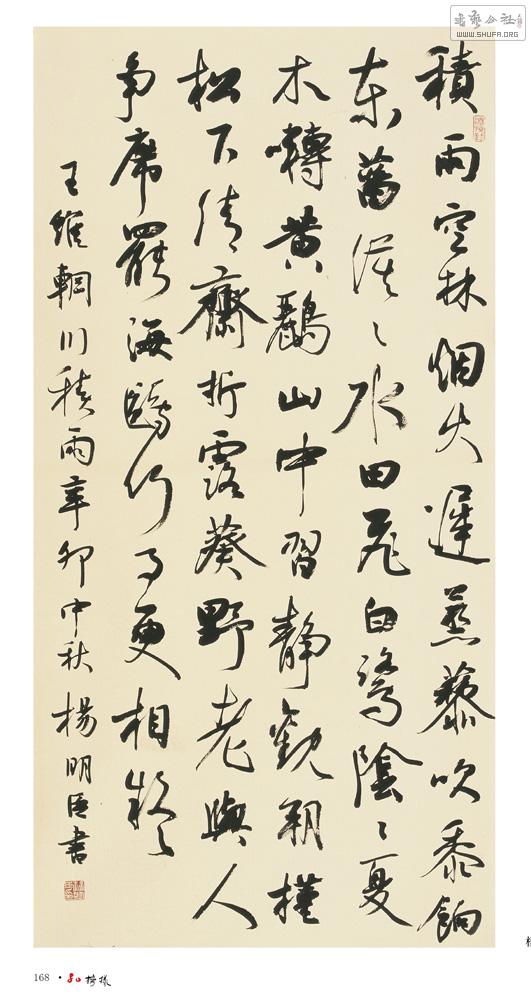 書藝公社
WWW.SHUFA.ORG
積雨空林烟火遲蒸藜吹黍餉
東菑漠〻水田飛白鷺陰〻夏
木囀黃鸝山中習靜觀朝槿
松下清齋折露葵野老與人
爭席罷海鷗何事更相疑
王維輞川積雨辛卯中秋楊明臣書
168